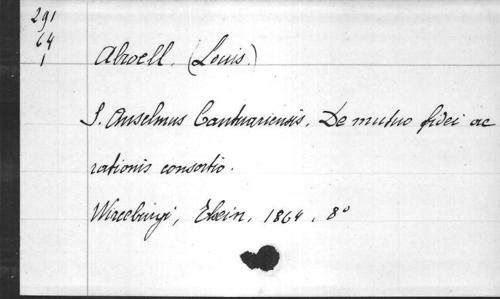 291
64
1
Abroell. (Louis.)
S. Anselmus Cantuariensis. De mutuo fidei ac
rationis consortio.
Wirceburgi, Etlein, 1864, 8°